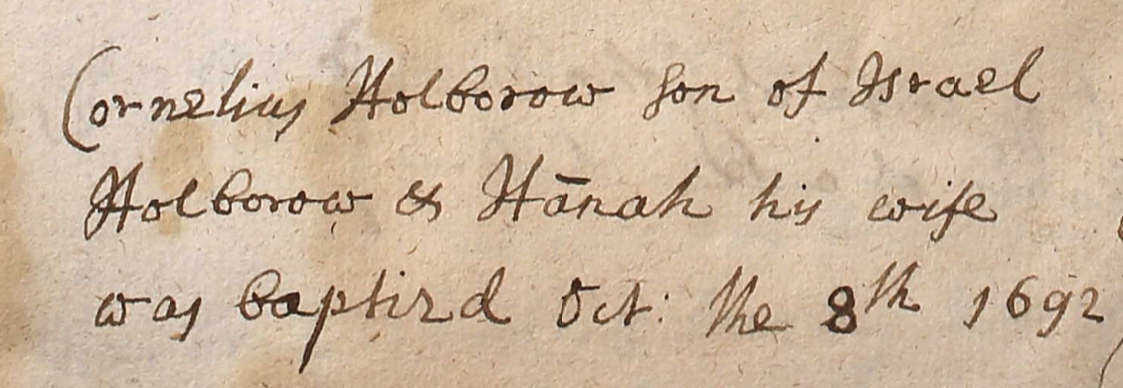 Cornelius Holborow son of Israel
Holborow & Hānah his wife
was baptizd Oct: the 8th 1692